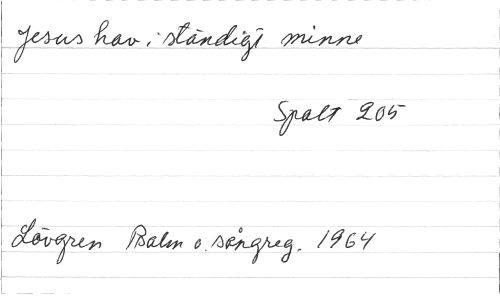 Jesus hav i ständigt minne
Spalt 205
Lövgren Psalm o. sångreg. 1964